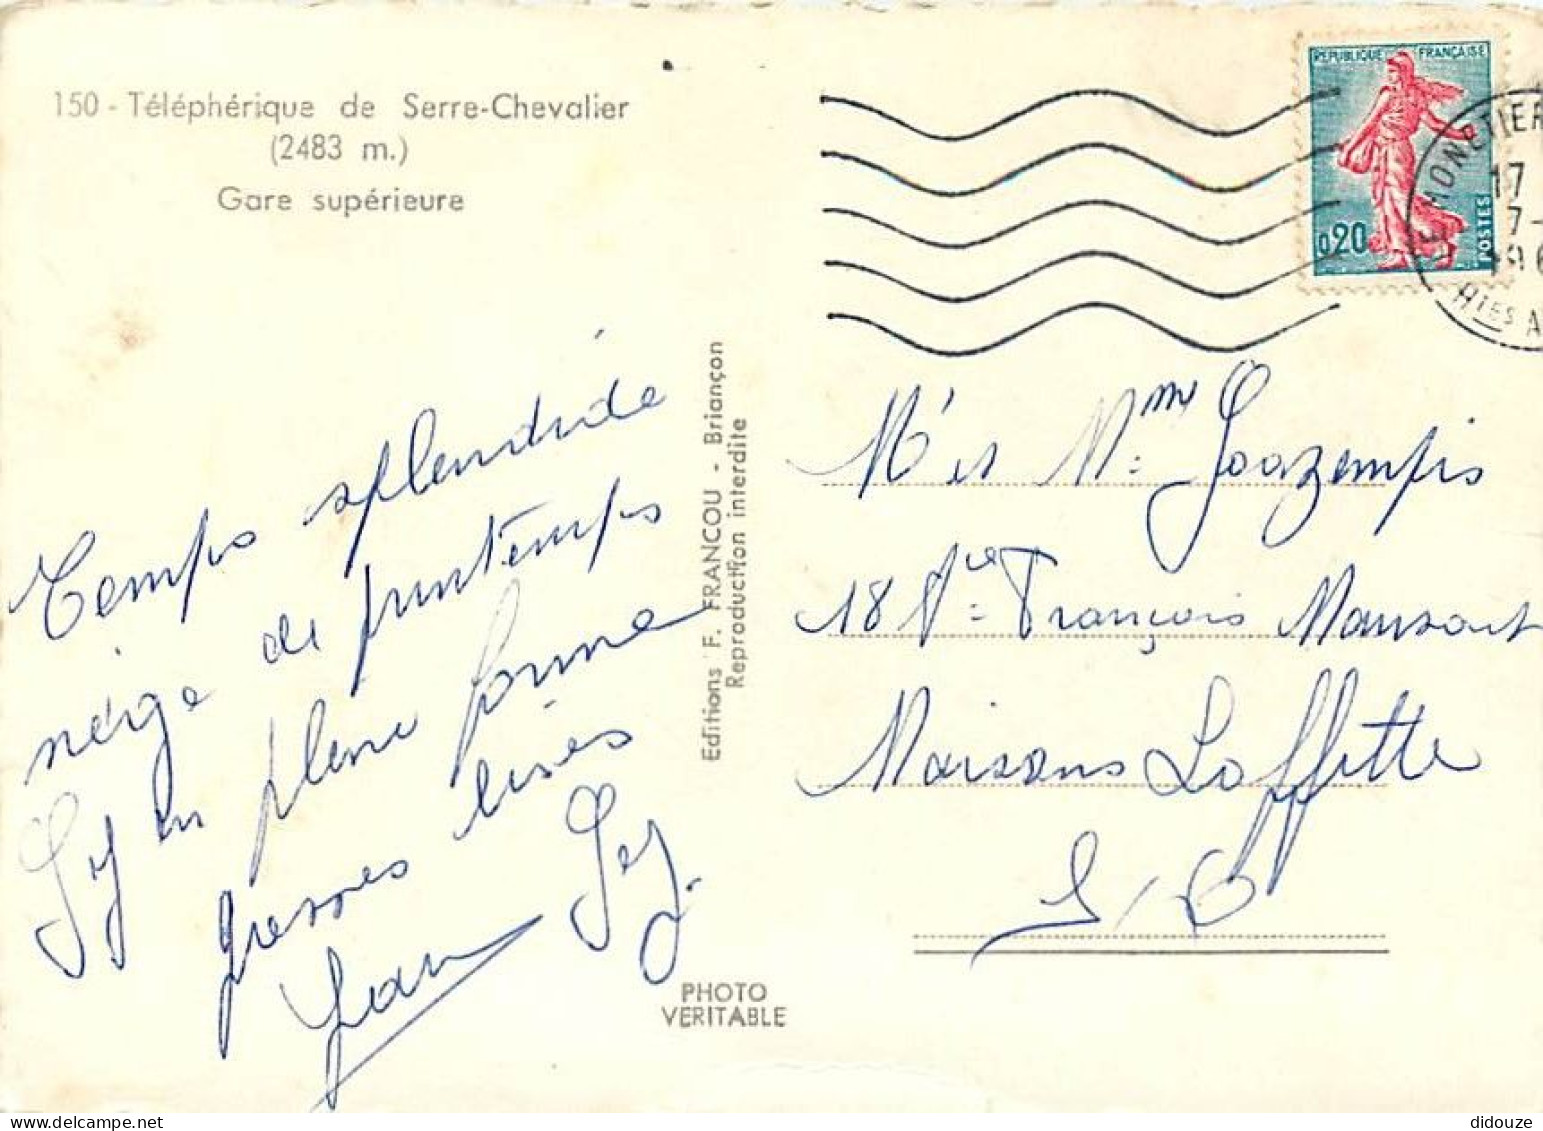 150 - Téléphérique de Serre-Chevalier
(2483 m.)
Gare supérieure
Temps splendide
neige de printemps
Gèj en pleine forme
grosses bises
Jean Gèj.
Editions F. FRANCOU - Briançon
Reproduction interdite
PHOTO
VERITABLE
REPUBLIQUE FRANÇAISE
0,20
POSTES
MONETIER
17
7-
196
Htes A
Mr et Mme Goazempis
18 Ave François Mansart
Maisons Laffitte
S/O
didouze